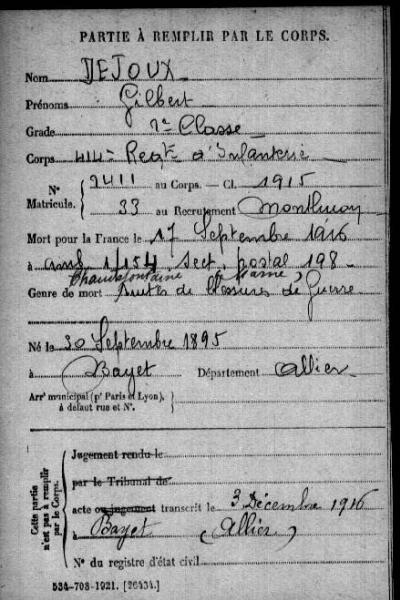 PARTIE À REMPLIR PAR LE CORPS.
Nom DEJOUX
Prénoms Gilbert
Grade 2e Classe
Corps 414e Regt d'Infanterie
N° Matricule. 2411 au Corps. — Cl. 1915
33 au Recrutement Montluçon
Mort pour la France le 17 Septembre 1916
à amb 1/154 sect. postal 198
Chaudefontaine (Marne)
Genre de mort Suites de blessures de Guerre
Né le 30 Septembre 1895
à Bayet Département Allier
Arrt municipal (pr Paris et Lyon),
à défaut rue et N°.
Cette partie n'est pas à remplir par le Corps.
Jugement rendu le
par le Tribunal de
acte ou jugement transcrit le 3 Décembre 1916
à Bayet (Allier)
N° du registre d'état civil
534-708-1921. [26434.]